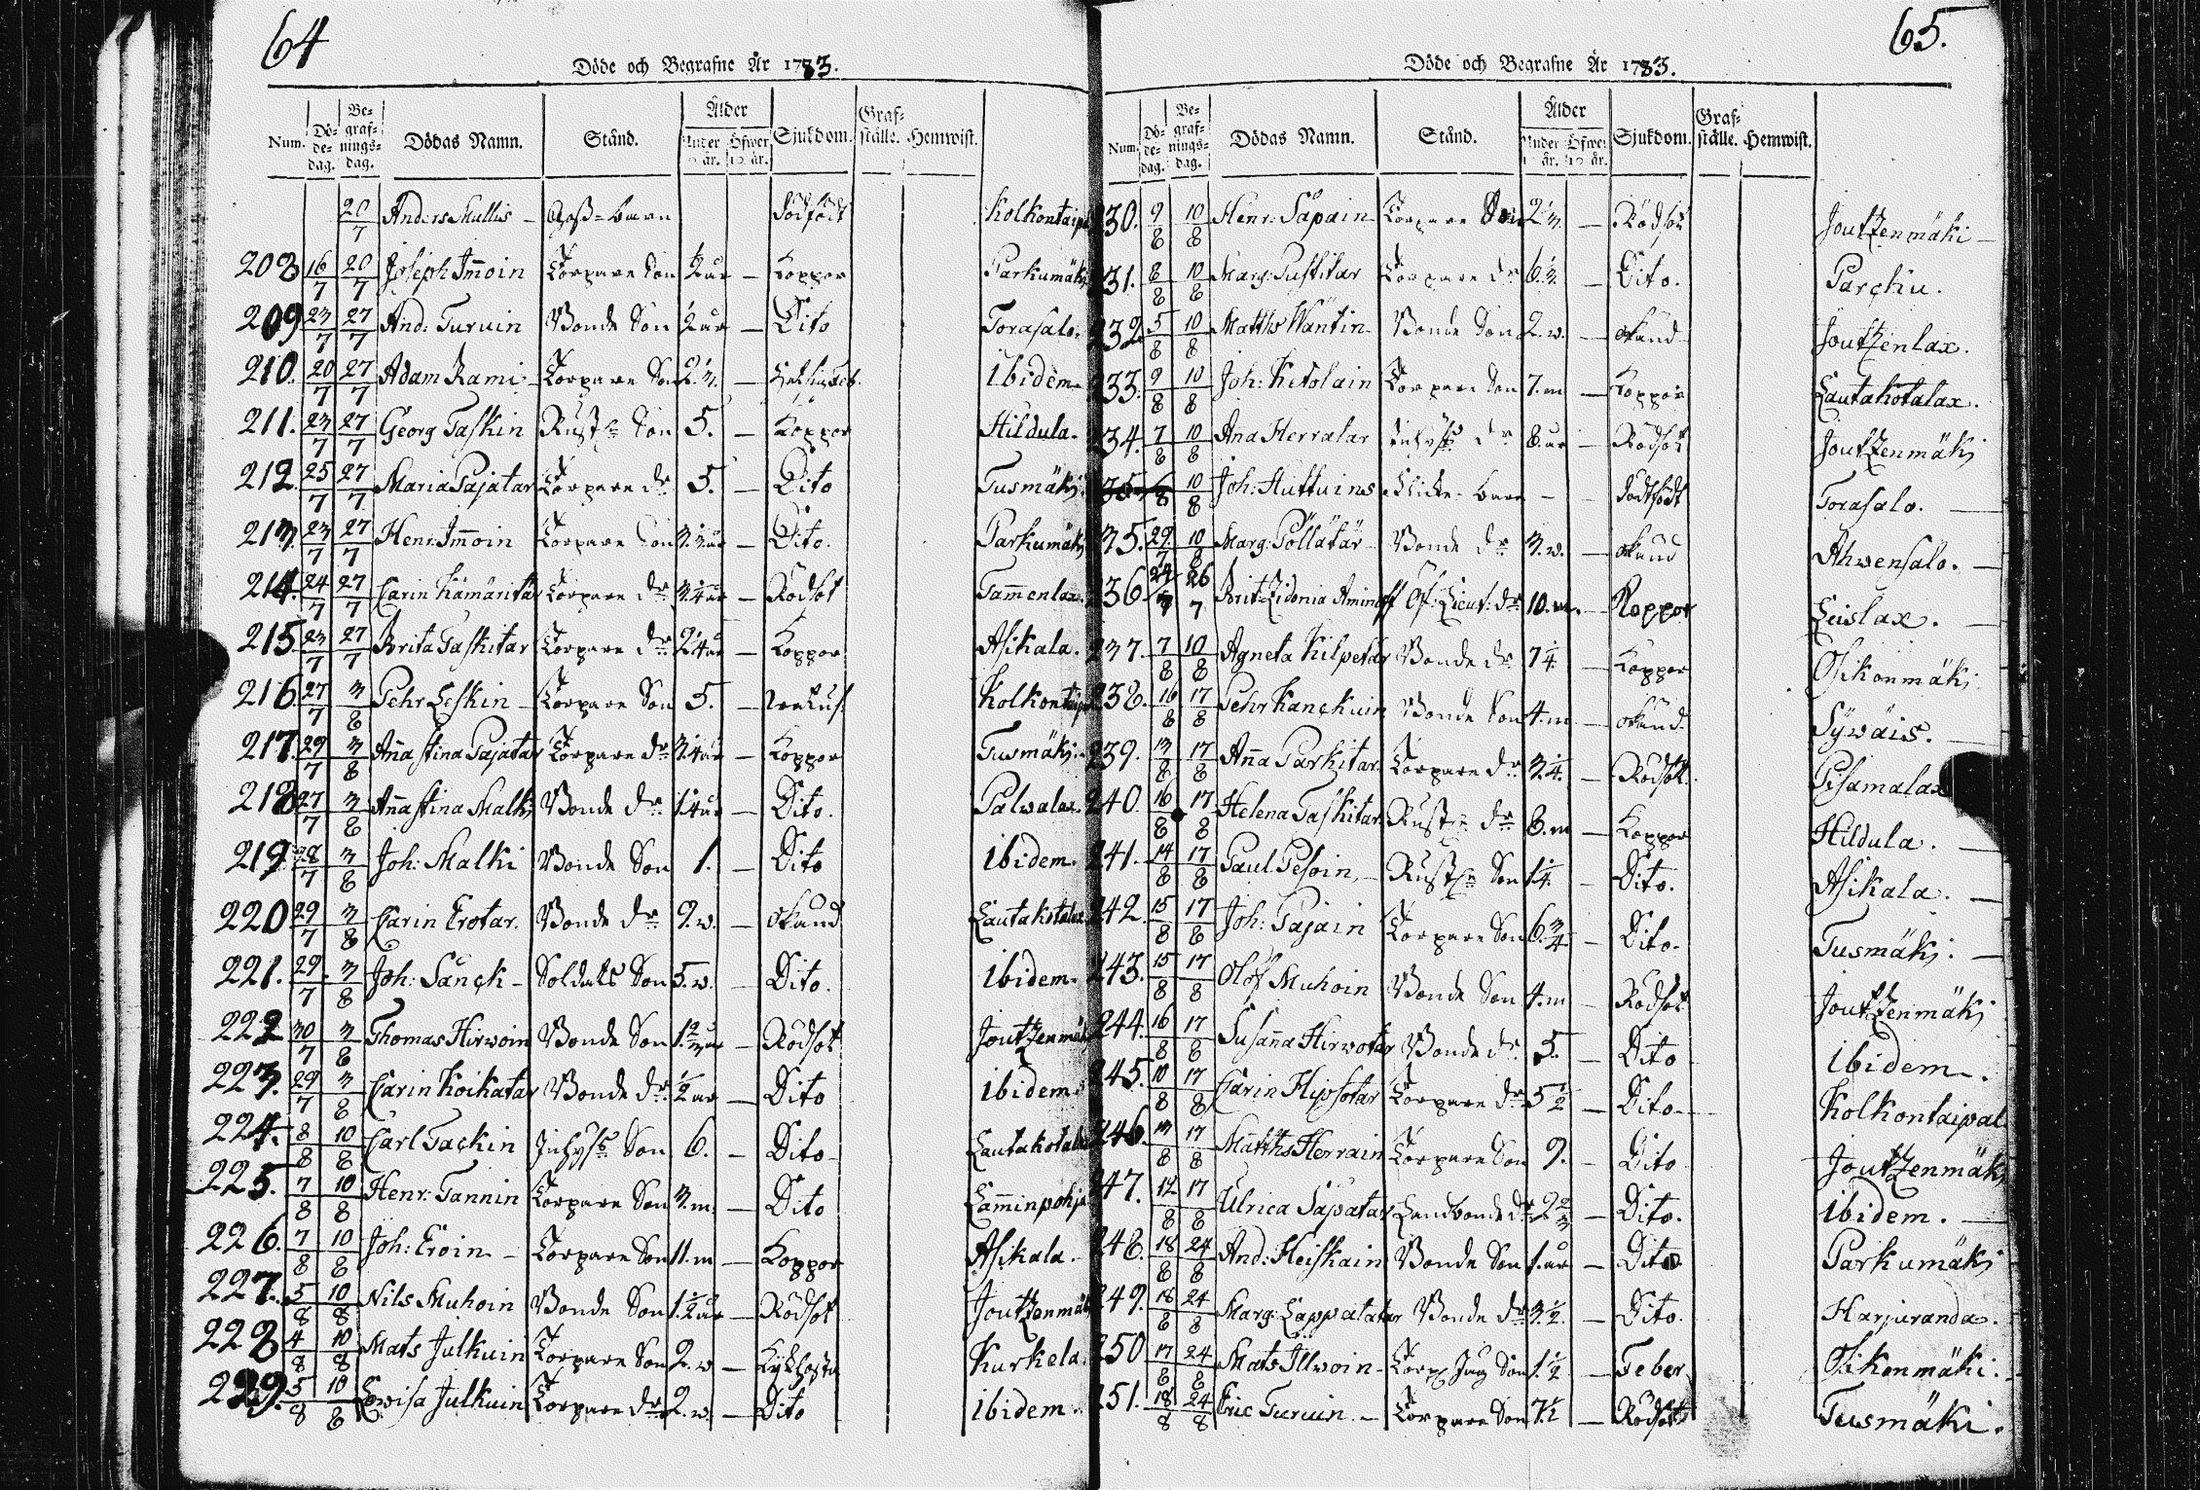 64
Döde och Begrafne År 1783.
Num. Dö-de-dag. Be-graf-nings-dag. Dödas Namn. Stånd. Ålder Under år. Öfwer år. Sjukdom. Graf-ställe. Hemwist.
20/7 Anders Mullis - Goss-barn dödfödt Kolkontaip
208 16/7 20/7 Joseph Im̄oin Torpare Son ½ år - Koppor Parkumäki
209 23/7 27/7 And: Turuin Bonde Son ½ år - Dito Torasalo.
210. 20/7 27/7 Adam Rami - Torpare Son - ibidem.
211. 23/7 27/7 Georg Taskin Rust Son 5. - Koppor Hildula.
212. 25/7 27/7 Maria Pajatar Torpare dr 5. - Dito Tusmäki.
213. 23/7 27/7 Henr: Im̄oin Torpare Son - Dito. Parkumäki
214. 24/7 27/7 Carin Hämäritär Torpare dr 3¼ år - Rödsot Tam̄enlax.
215. 23/7 27/7 Brita Taskitar Torpare dr 2¼ år - Koppor Asikala.
216. 27/7 3/8 Pehr Leskin - Torpare Son 5. - Kolkontaipa
217. 29/7 3/8 An̄a Stina Pajatar Torpare dr 3¼ år - Koppor Tusmäki.
218. 27/7 3/8 An̄a Stina Malki Bonde dr 1¼ år - Dito. Palwalax.
219. 28/7 3/8 Joh: Malki Bonde Son 1. - Dito ibidem.
220. 29/7 3/8 Carin Erotar. Bonde dr 2. w. - okänd Lautakotalax
221. 29/7 3/8 Joh: Sänck - Soldats Son 5. w. - Dito. ibidem.
222 30/7 3/8 Thomas Hirwoin Bonde Son 1⅔ år - Rödsot Joutzenmäki
223. 29/7 3/8 Carin Koikatar Bonde dr ½ år - Dito ibidem.
224. 8/8 10/8 Carl Tackin Inhyses Son 6. - Dito - Lautakotalax
225. 7/8 10/8 Henr: Tannin Torpare Son 3. m. - Dito Lam̄inpohja
226. 7/8 10/8 Joh: Eroin - Torpare Son 11. m - Koppor Asikala.
227. 5/8 10/8 Nils Muhoin Bonde Son 1½ år - Rödsot Joutzenmäki
228 4/8 10/8 Mats Julkuin Torpare Son 2. w - Kikhosta Kurkela.
229. 5/8 10/8 Lowisa Julkuin Torpare dr 2. w. - Dito ibidem.
65.
Döde och Begrafne År 1783.
Num. Dö-de-dag. Be-graf-nings-dag. Dödas Namn. Stånd. Ålder Under år. Öfwer år. Sjukdom. Graf-ställe. Hemwist.
230. 9/8 10/8 Henr: Säpäin Torpare Son 2⅓ - Rödsot Joutzenmäki -
231. 8/8 10/8 Marg: Pustitar Torpare dr 6⅓ - Dito. Parchu.
232 5/8 10/8 Matths Wäntin - Bonde Son 2. w. - okänd Joutzenlax.
233. 9/8 10/8 Joh: Ketolain Torpare Son 7. m - Koppor Lautakotalax.
234. 7/8 10/8 Ana Herralar Inhyses dr 8. år - Rödsot Joutzenmäki
235 6/8 10/8 Joh: Huttuins Flicke-barn - - dödfödt Torasalo. -
235. 29/7 10/8 Marg: Pöllätär - Bonde dr 3. w. - okänd Ahwensalo. -
236. 24/7 26/7 Brit: Zidonia Aminoff Öf: Lieut: dr 10. m. - Koppor Leislax. -
237. 7/8 10/8 Agneta Kilpetar Bonde dr 7¼ - Koppor Osikonmäki
238. 16/8 17/8 Pehr Kanckuin Bonde Son 4. m - okänd. Sywäis. -
239. 13/8 17/8 An̄a Parkitar. Torpare dr 3¼. - Rödsot. Pisamalax
240. 16/8 17/8 Helena Taskitar Rust dr 8. m - Koppor Hildula. -
241. 14/8 17/8 Paul Pesoin, - Rust Son 1¼. - Dito. Asikala. -
242. 15/8 17/8 Joh: Pajain Torpare Son 6¾ - Dito. Tusmäki. -
243. 15/8 17/8 Olof Muhoin Bonde Son 4. m - Rödsot Joutzenmäki
244. 16/8 17/8 Susan̄a Hirwotar Bonde dr 5. - Dito ibidem.
245. 10/8 17/8 Carin Hypsotar Torpare dr 5½ - Dito - Kolkontaipal
246. 13/8 17/8 Matths Herrain Torpare Son 9. - Dito Joutzenmäki
247. 12/8 17/8 Ulrica Säpätar Landbonde dr 2⅔ - Dito. ibidem. -
248. 18/8 24/8 And: Heiskain Bonde Son 1. år - Dito Parkumäki
249. 18/8 24/8 Marg: Lappalatar Bonde dr 3½. - Dito. Harjuranda.
250 17/8 24/8 Mats Illwoin - Torp: Son 1½ - Feber Osikonmäki.
251. 18/8 24/8 Eric Turuin. - Torpare Son 7½ - Rödsot Tusmäki.